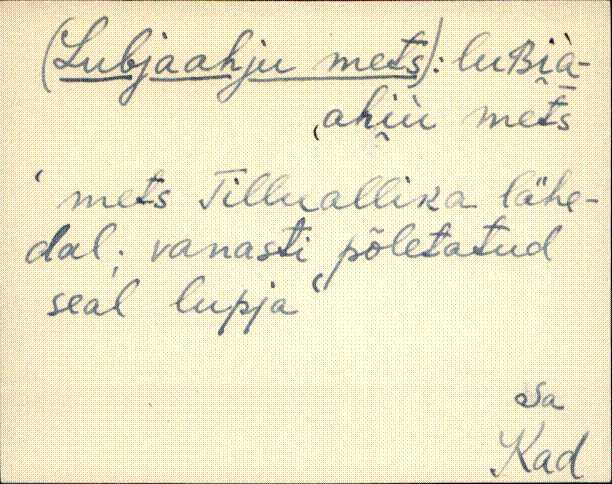 (Lubjaahju mets): luʙi̯à-
ˌahi̯ù met̄s
‘mets Tilluallika lähe-
dal; vanasti põletatud
seal lupja‘
Sa
Kad